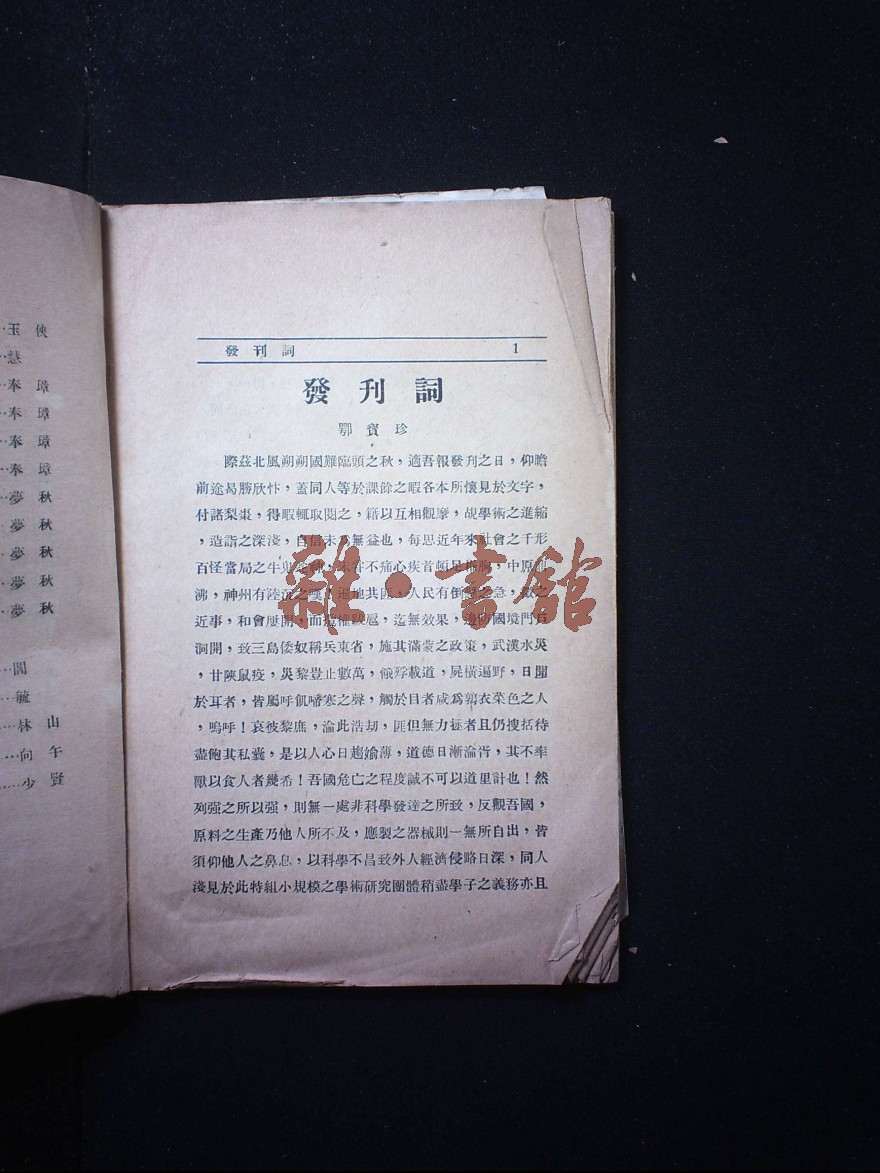 玉俠
慧
奉璋
奉璋
奉璋
奉璋
夢秋
夢秋
夢秋
夢秋
夢秋
閭
毓
林山
向午
少賢
發刊詞 1
發刊詞
鄂寶珍
際茲北風朔朔國難臨頭之秋，適吾報發刊之日，仰瞻
前途曷勝欣忭，蓋同人等於課餘之暇各本所懷見於文字，
付諸梨棗，得暇輒取閱之，藉以互相觀摩，覘學術之進縮
，造詣之深淺，自信未必無益也，每思近年來社會之千形
百怪當局之牛鬼蛇神，未嘗不痛心疾首頓足搥胸，中原鼎
沸，神州有陸沉之嘆！遍地共匪，人民有倒懸之急，徵之
近事，和會屢開，而飛機，迄無效果，邊防國境門戶
洞開，致三島倭奴稱兵東省，施其滿蒙之政策，武漢水災
，甘陝鼠疫，災黎豈止數萬，餓殍載道，屍橫遍野，日聞
於耳者，皆屬呼飢嗜寒之聲，觸於目者咸爲鶉衣菜色之人
，嗚呼！哀彼黎庶，淪此浩劫，匪但無力拯者且仍搜括待
盡飽其私囊，是以人心日趨媮薄，道德日漸淪胥，其不率
獸以食人者幾希！吾國危亡之程度誠不可以道里計也！然
列强之所以强，則無一處非科學發達之所致，反觀吾國，
原料之生產乃他人所不及，應製之器械則一無所自出，皆
須仰他人之鼻息，以科學不昌致外人經濟侵略日深，同人
淺見於此特組小規模之學術研究團體稍盡學子之義務亦且
雜·書館